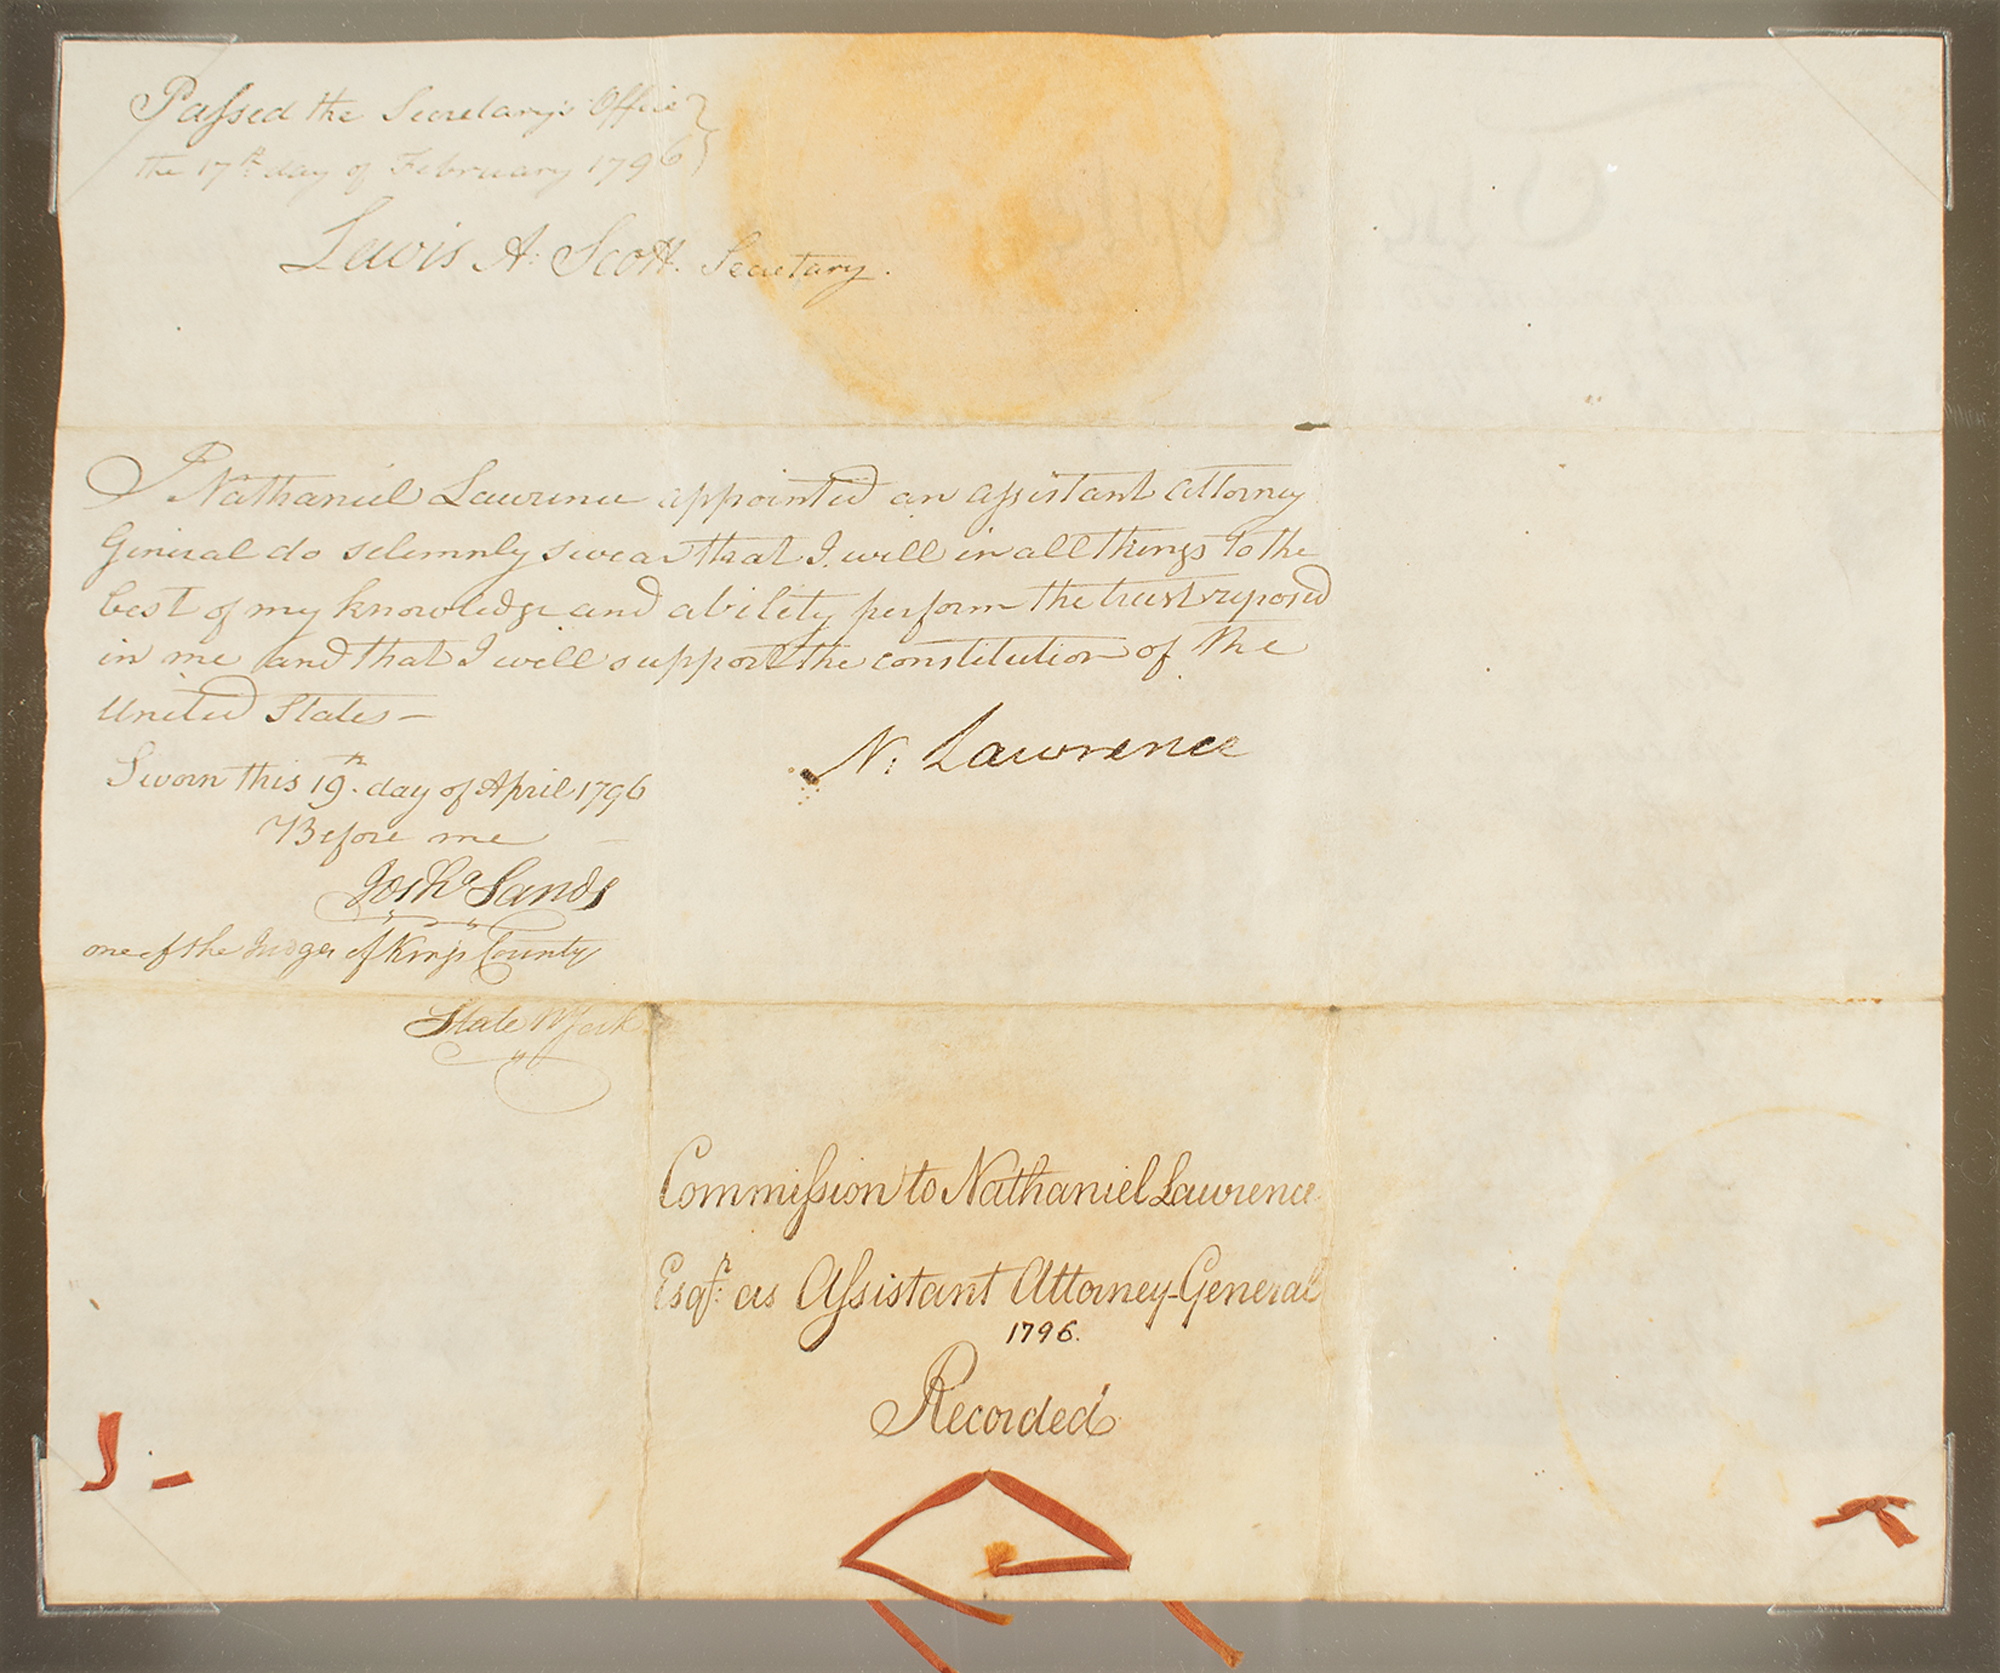 Passed the Secretary's Office
the 17th day of February 1796
Lewis A: Scott. Secretary.
I Nathaniel Lawrence appointed an assistant attorney
General do solemnly swear that I will in all things to the
best of my knowledge and ability perform the trust reposed
in me and that I will support the constitution of the
United States —
N: Lawrence
Sworn this 19th day of April 1796
Before me
Josha Sands
one of the Judges of Kings County
State N York
Commission to Nathaniel Lawrence
Esqr: as Assistant Attorney-General
1796.
Recorded